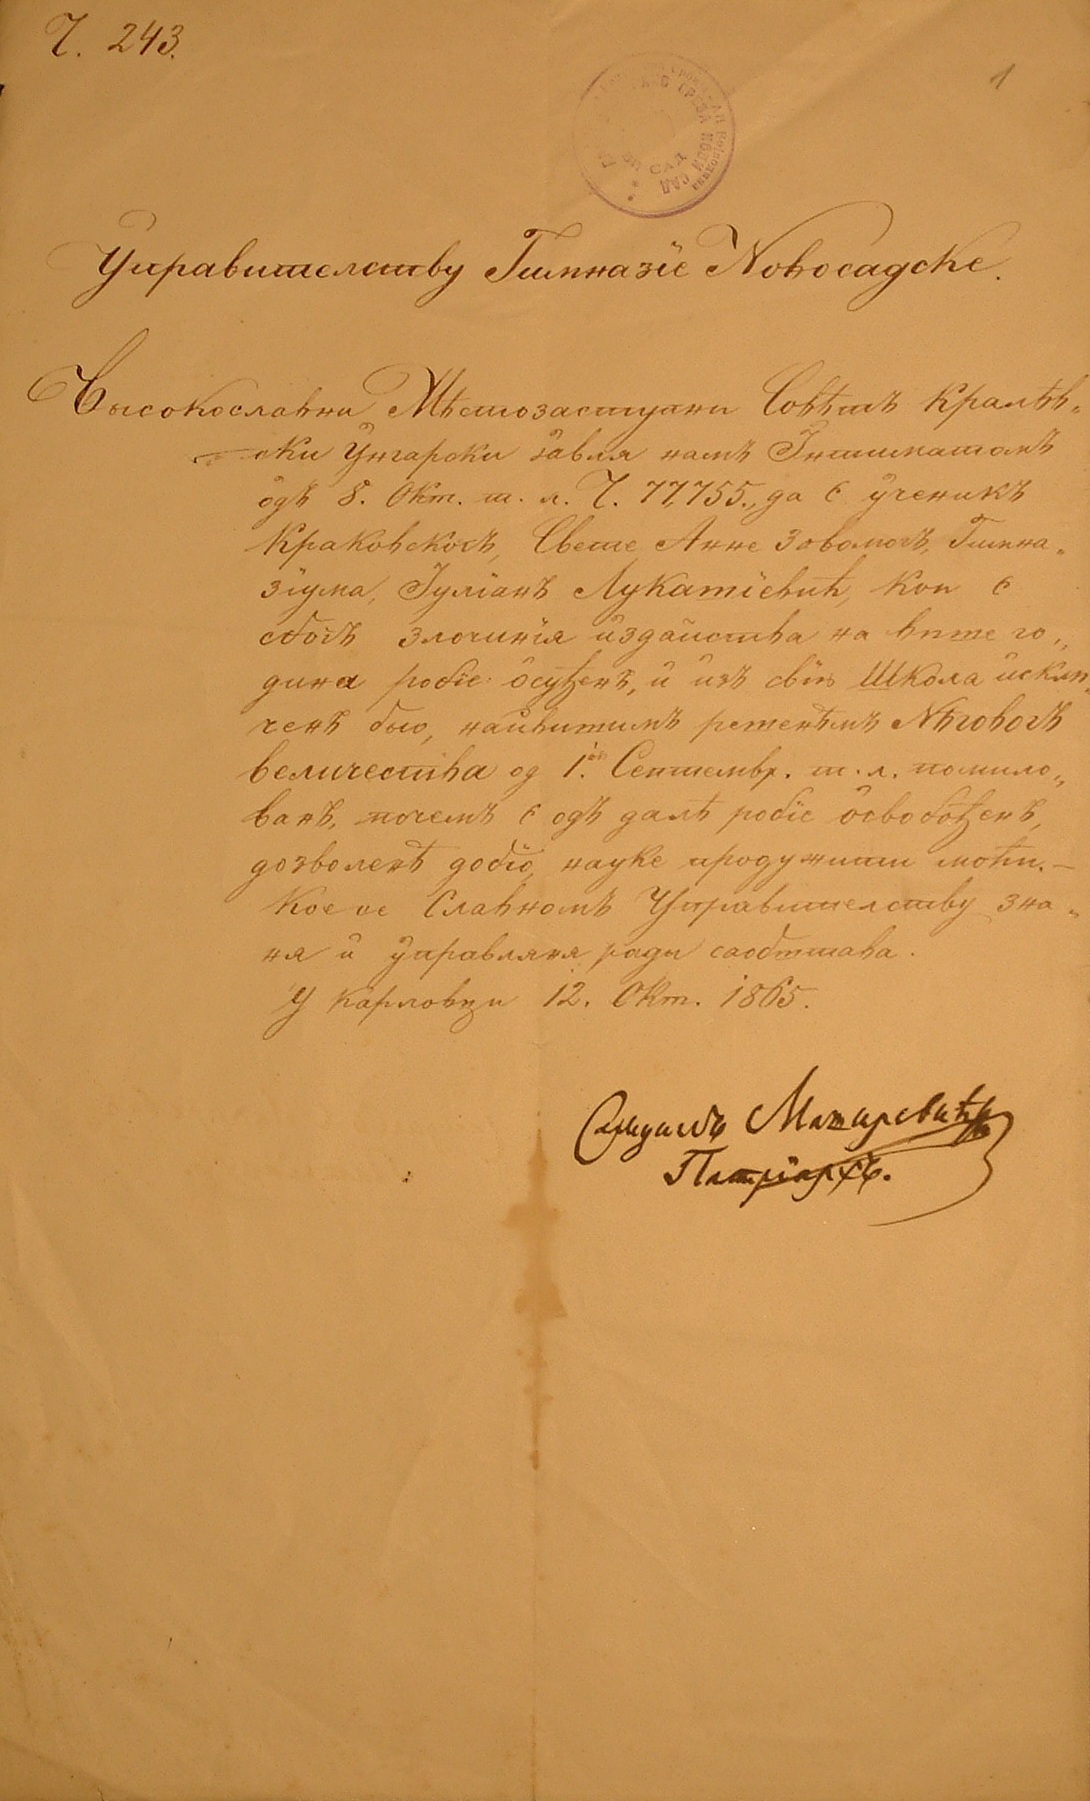 Ч. 243.
1
Управителству Гимназіе Новосадске.
Высокославни Мѣстозаступни Совѣтъ Кралѣв„
ски Унгарски явля намъ Интиматомъ
одъ 8. Окт. т. л. Ч. 77,755., да є ученикъ
Краковскогъ, Свете Анне зовомогъ, Гимна„
зіума, Іуліанъ Лукашіевић, кои є
збогъ злочинія издайства на више го„
дина робіе осуђенъ, и изъ свію Школа исклю
ченъ био, найвишимъ решенѣмъ Нѣговогъ
величества од 1. Септембр. т. л. помило„
ванъ, почемъ є одъ далѣ робіе ослобођенъ,
дозволенѣ добіо, науке продужити моћи.—
Кое се Славномъ Управителству зна„
ня и управляня ради саобштава.
У Карловци 12. Окт. 1865.
Самуилъ Маширевићъ
Патріархъ.